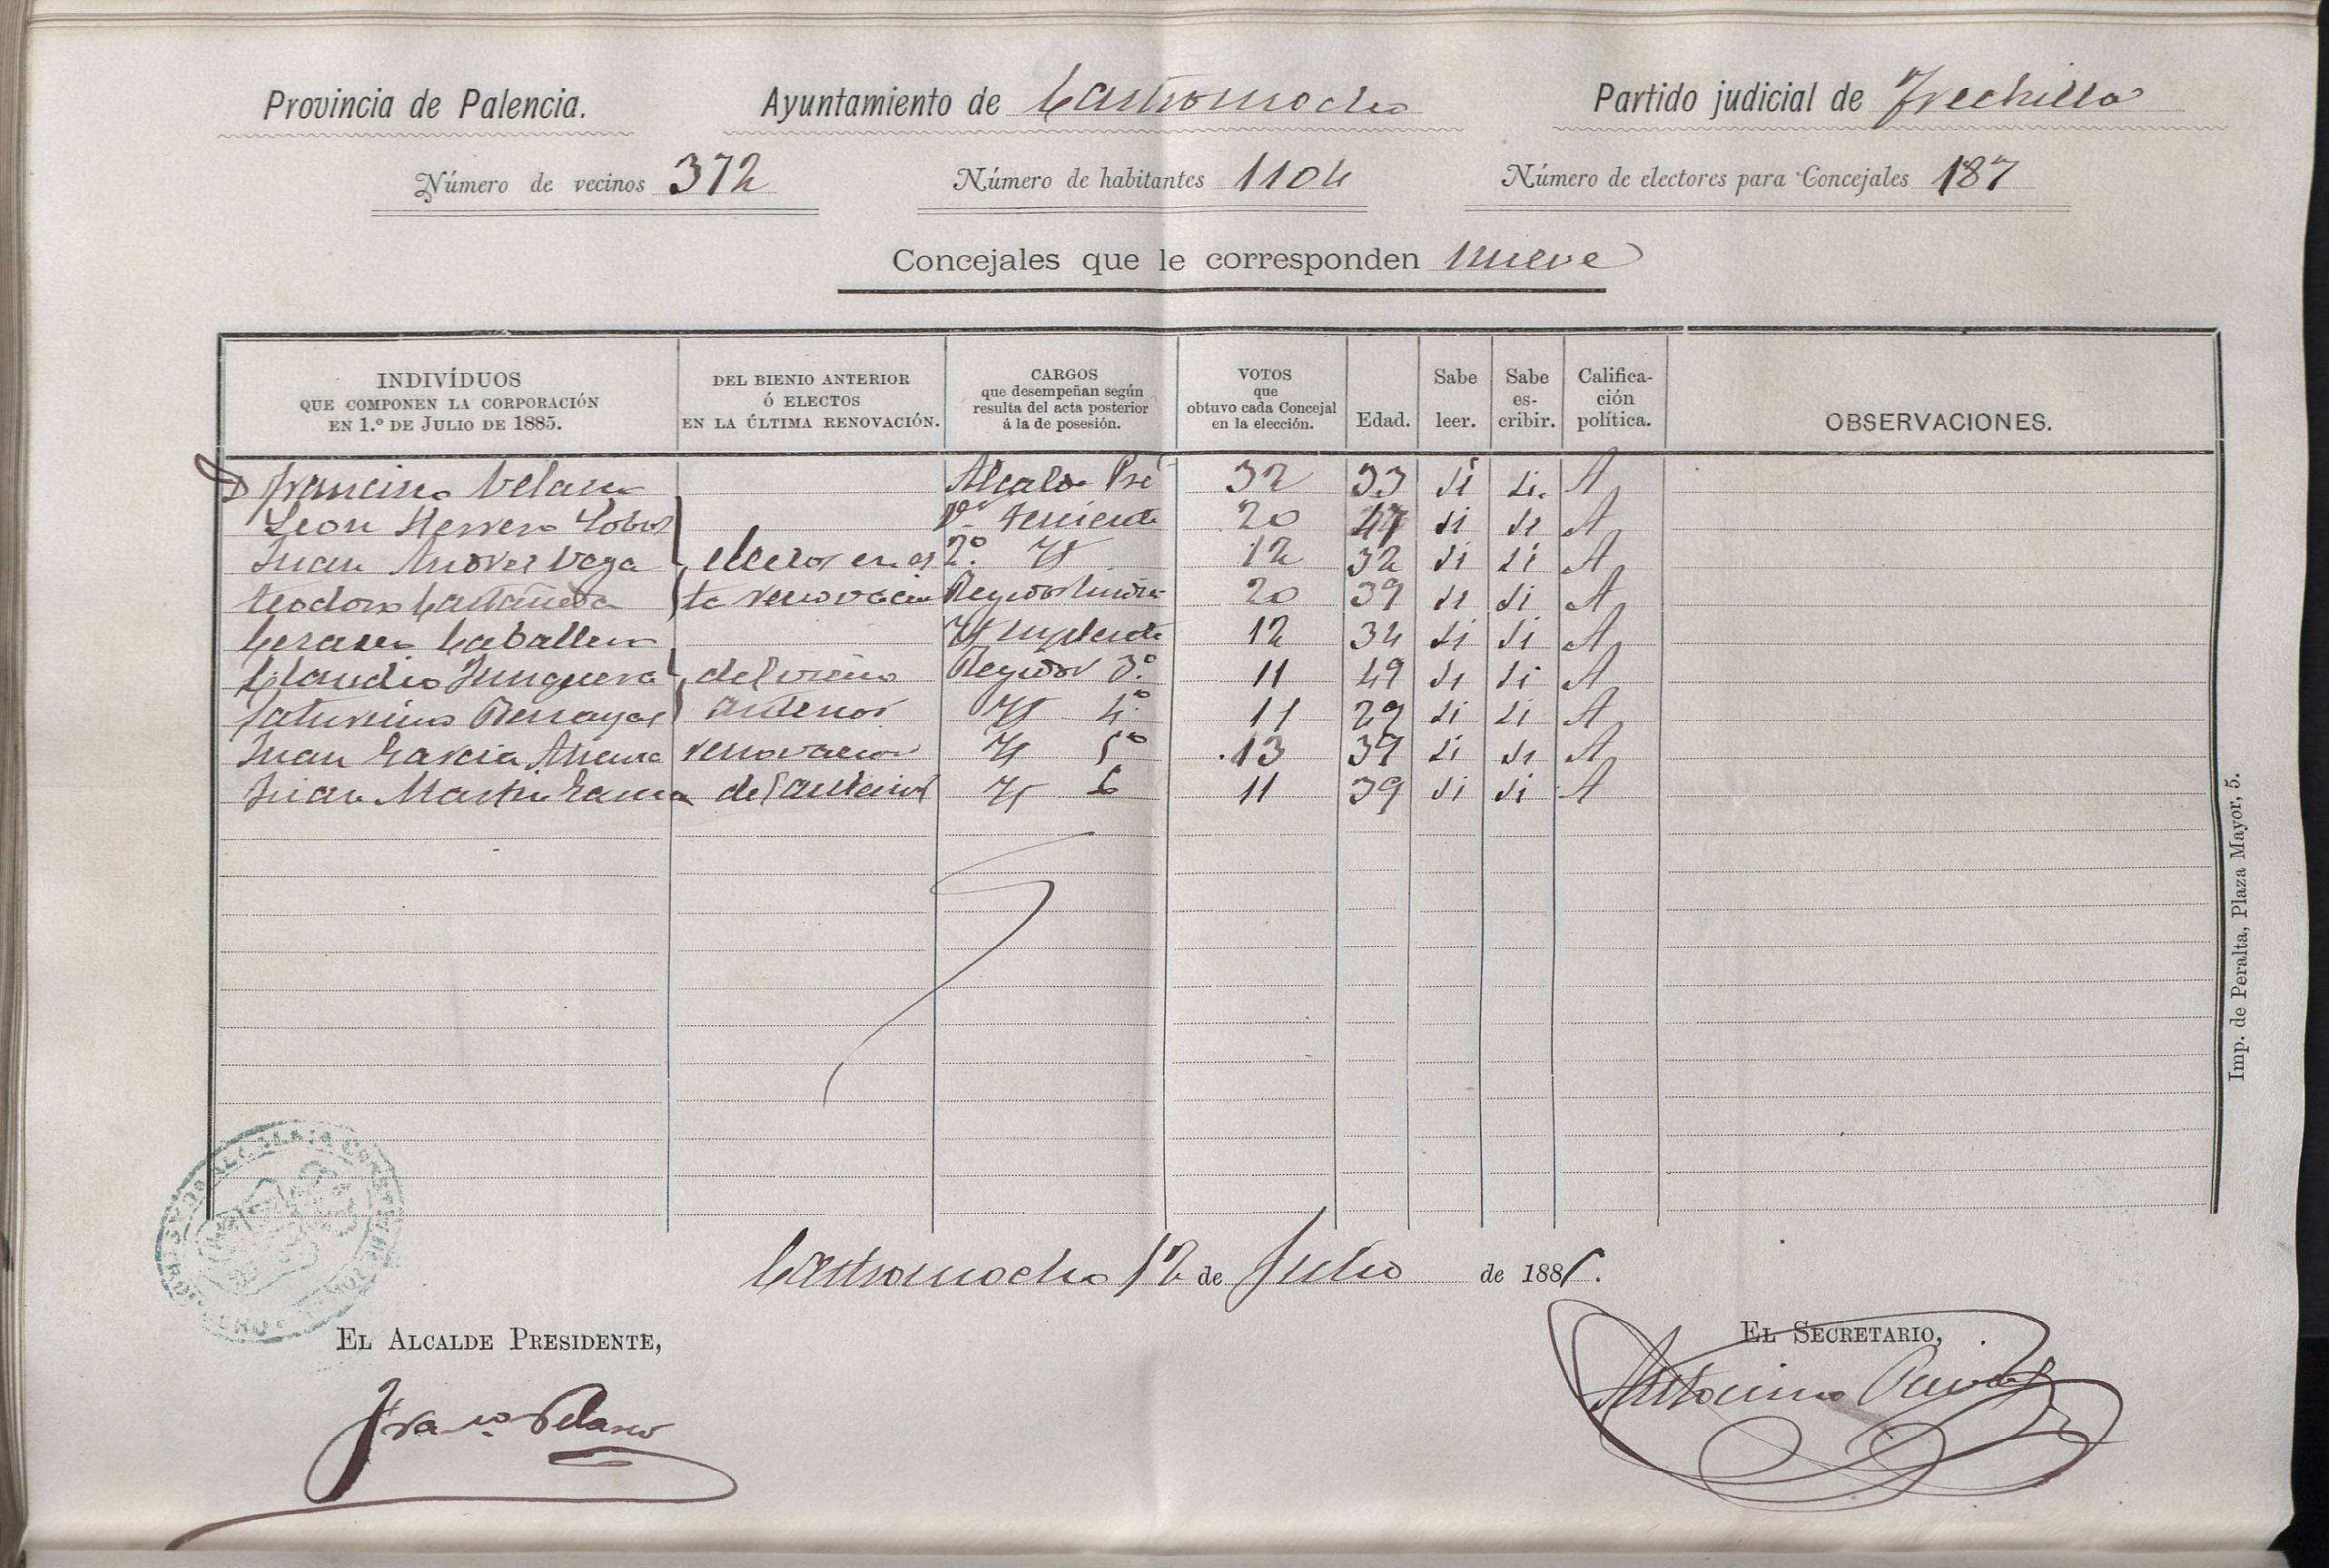 Provincia de Palencia. Ayuntamiento de Castromocho Partido judicial de Frechilla
Número de vecinos 372 Número de habitantes 1104 Número de electores para Concejales 187
Concejales que le corresponden nueve
INDIVÍDUOS QUE COMPONEN LA CORPORACIÓN EN 1.º DE JULIO DE 1885. DEL BIENIO ANTERIOR Ó ELECTOS EN LA ÚLTIMA RENOVACIÓN. CARGOS que desempeñan según resulta del acta posterior á la de posesión. VOTOS que obtuvo cada Concejal en la elección. Edad. Sabe leer. Sabe escribir. Calificación política. OBSERVACIONES.
D Francisco Velasco Alcalde Pre 32 33 si si. A
Leon Herrero Cobos 1er teniente 20 47 si si A
Juan Andres Vega electos en es 2º. Yd 12 32 si si A
Teodoro Castañeda ta renovacion Regidor Sindico 20 39 si si A
Caballero Yd suplente 12 34 si si A
Claudio Junquera del vienio Regidor 3º 11 49 si si A
Saturnino anterior Yd 4º 11 29 si si A
Juan Garcia renovacion Yd 5º 13 39 si si A
Juan Martin del anterior Yd 6 11 39 si si A
Castromocho 12 de Julio de 1885.
EL ALCALDE PRESIDENTE, EL SECRETARIO,
Franco Velasco Antonino
Imp. de Peralta, Plaza Mayor, 5.